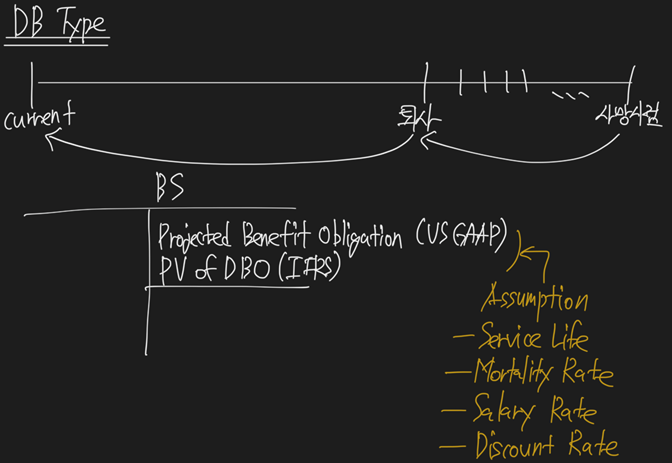 DB Type
current
퇴사
사망시점
BS
Projected Benefit Obligation (US GAAP)
PV of DBO (IFRS)
Assumption
- Service Life
- Mortality Rate
- Salary Rate
- Discount Rate